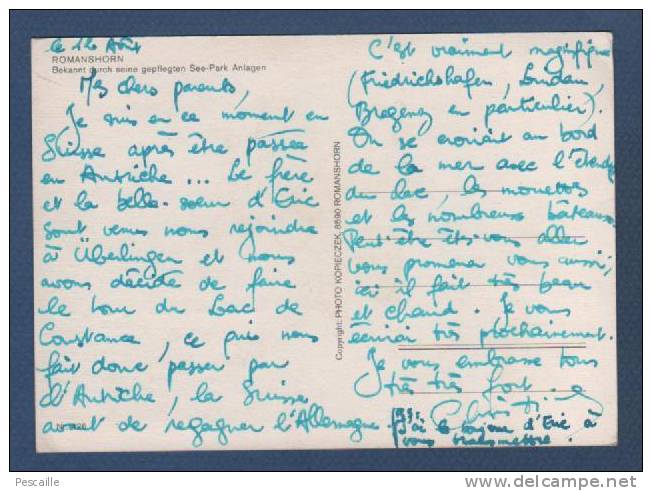 le 12 Août
ROMANSHORN
Bekannt durch seine gepflegten See-Park Anlagen
Mes chers parents,
Je suis en ce moment en
Suisse après être passée
en Autriche ... Le frère
et la belle-soeur d'Eric
sont venus nous rejoindre
à Überlingen et nous
avons décidé de faire
le tour du Lac de
Constance, ce qui nous
fait donc passer par
l'Autriche, la Suisse
avant de regagner l'Allemagne.
Copyright: PHOTO KOPIECZEK, 8590 ROMANSHORN
C'est vraiment magnifique
(Friedrichshafen, Lindau,
Bregenz en particulier).
On se croirait au bord
de la mer avec l'étendue
du lac, les mouettes
et les nombreux bâteaux.
Peut-être êtes-vous allés
vous promener vous aussi;
ici il fait très beau
et chaud. Je vous
écrirai très prochainement.
Je vous embrasse tous
très très fort.
P.S: J'ai le bonjour d'Eric à
vous transmettre.
Pescaille
www.delcampe.net